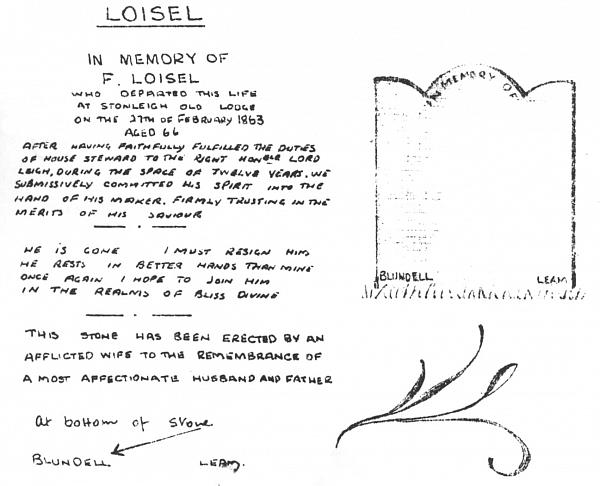 LOISEL
IN MEMORY OF
F. LOISEL
WHO DEPARTED THIS LIFE
AT STONLEIGH OLD LODGE
ON THE 27TH OF FEBRUARY 1863
AGED 66
AFTER HAVING FAITHFULLY FULFILLED THE DUTIES
OF HOUSE STEWARD TO THE RIGHT HONBLE LORD
LEIGH, DURING THE SPACE OF TWELVE YEARS. WE
SUBMISSIVELY COMMITTED HIS SPIRIT INTO THE
HAND OF HIS MAKER. FIRMLY TRUSTING IN THE
MERITS OF HIS SAVIOUR
HE IS GONE I MUST RESIGN HIM
HE RESTS IN BETTER HANDS THAN MINE
ONCE AGAIN I HOPE TO JOIN HIM
IN THE REALMS OF BLISS DIVINE
THIS STONE HAS BEEN ERECTED BY AN
AFFLICTED WIFE TO THE REMEMBRANCE OF
A MOST AFFECTIONATE HUSBAND AND FATHER
At bottom of stone
BLUNDELL. LEAM.
IN MEMORY OF
BLUNDELL LEAM